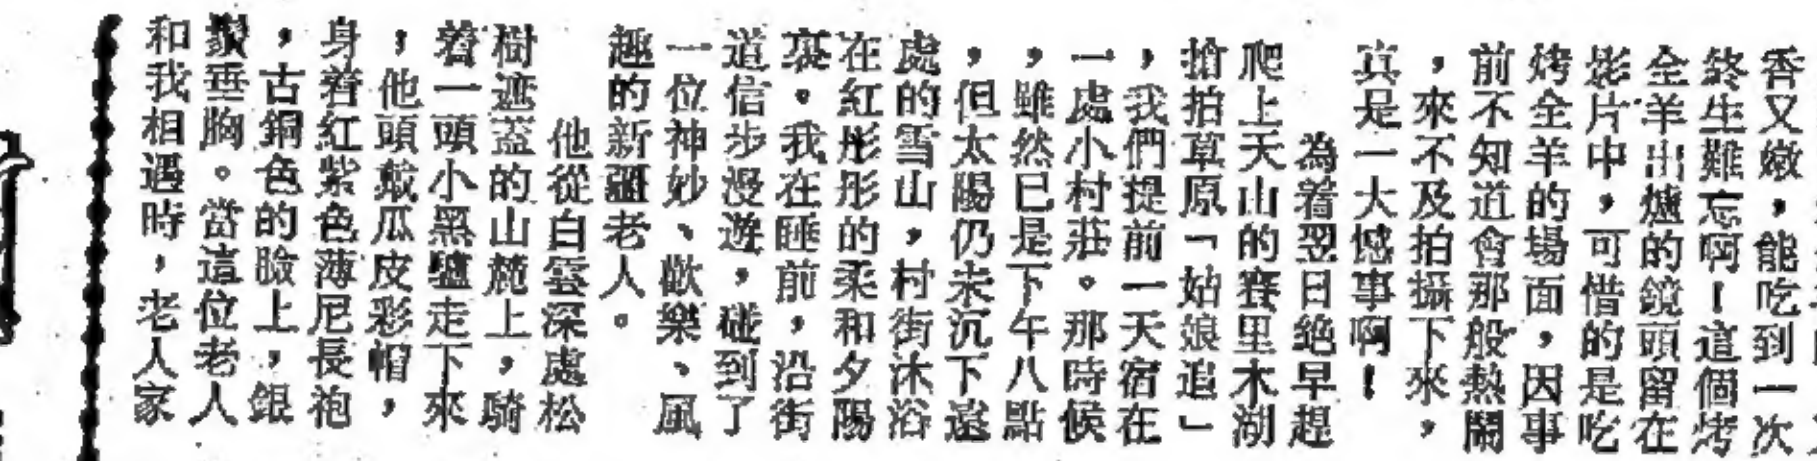 香又嫩，能吃到一次
終生難忘啊！這個烤
全羊出爐的鏡頭留在
影片中，可惜的是吃
烤全羊的場面，因事
前不知道會那般熱鬧
，來不及拍攝下來，
真是一大憾事啊！
為着翌日絶早趕
爬上天山的賽里木湖
搶拍草原「姑娘追」
，我們提前一天宿在
一處小村莊。那時候
，雖然已是下午八點
，但太陽仍未沉下遠
處的雪山，村街沐浴
在紅彤彤的柔和夕陽
裏。我在睡前，沿街
道信步漫遊，碰到了
一位神妙、歡樂、風
趣的新疆老人。
他從白雲深處松
樹遮蓋的山麓上，騎
着一頭小黑驢走下來
，他頭戴瓜皮彩帽，
身着紅紫色薄尼長袍
，古銅色的臉上，銀
鬚垂胸。當這位老人
和我相遇時，老人家